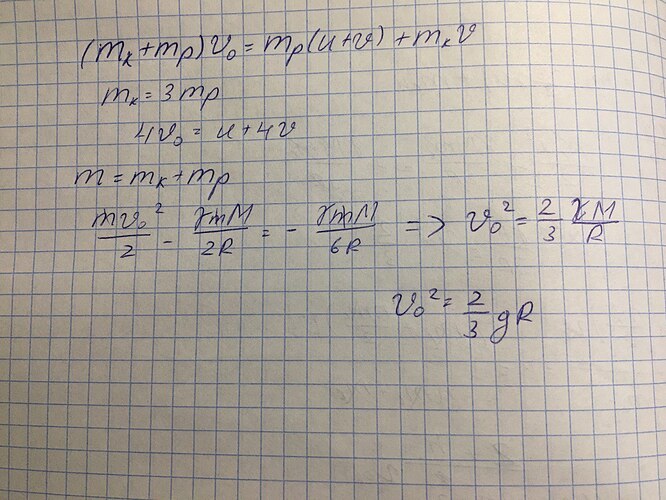 (m_k + m_p) v_0 = m_p (u + v) + m_k v
m_k = 3 m_p
4v_0 = u + 4v
m = m_k + m_p
\frac{m v_0^2}{2} - \frac{γmM}{2R} = - \frac{γmM}{6R} => v_0^2 = \frac{2}{3} \frac{γM}{R}
v_0^2 = \frac{2}{3} gR